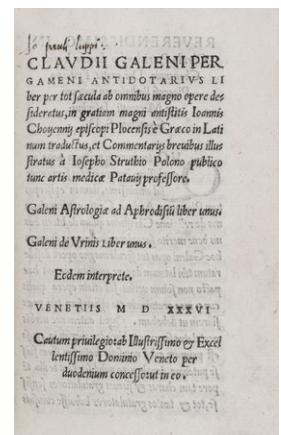 Jo pauli luppi.
CLAVDII GALENI PER
GAMENI ANTIDOTARIVS LI
ber per tot sæcula ab omnibus magno opere de-
sideratus, in gratiam magni antistitis Ioannis
Choyennij episcopi Plocensis è Græco in Lati
num traductus, et Commentarijs breuibus illu
stratus à Iosepho Struthio Polono publico
tunc artis medicæ Patauij professore.
Galeni Astrologiæ ad Aphrodisiũ liber unus.
Galeni de Vrinis Liber unus.
Eodem interprete.
VENETIIS M D XXXVI
Cautum priuilegio ab Illustrissimo & Excel
lentissimo Dominio Veneto per
duodenium concesso, ut in eo.